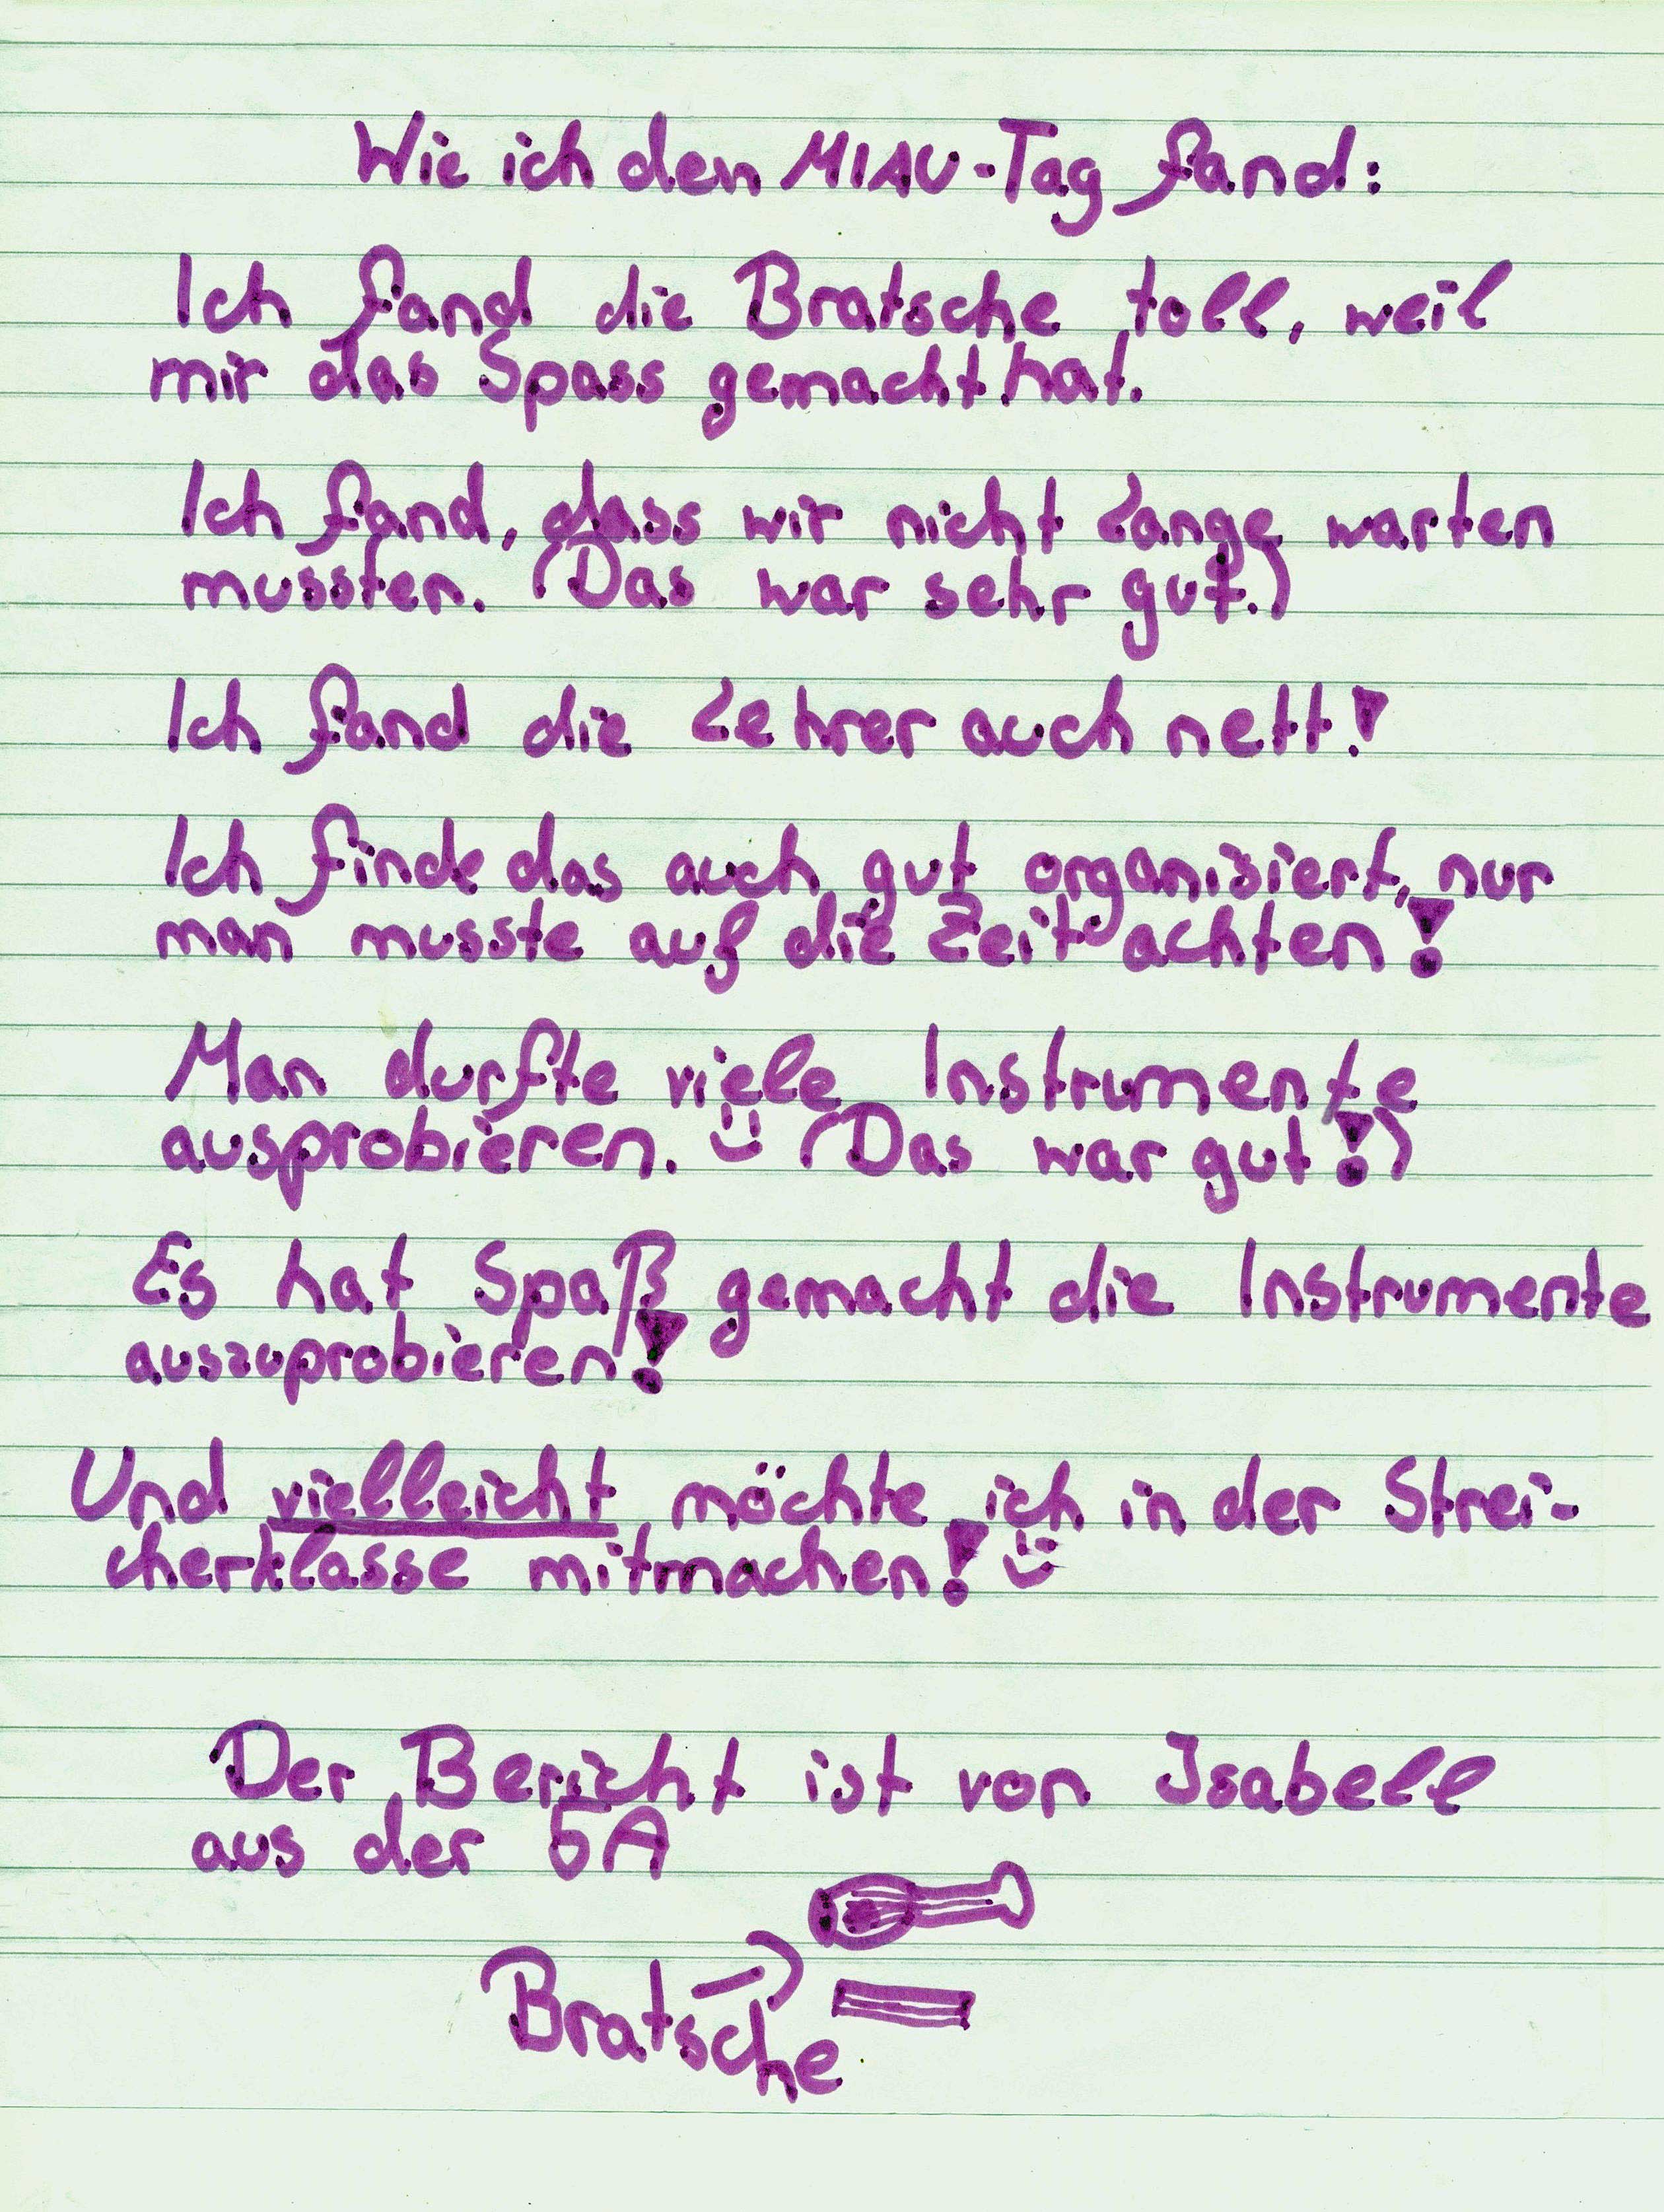 Wie ich den MIAU-Tag fand:
Ich fand die Bratsche toll, weil
mir das Spass gemacht hat.
Ich fand, dass wir nicht Lange warten
mussten. (Das war sehr gut.)
Ich fand die Lehrer auch nett!
Ich finde das auch gut organisiert, nur
man musste auf die Zeit achten!
Man durfte viele Instrumente
ausprobieren. (Das war gut!)
Es hat Spaß gemacht die Instrumente
auszuprobieren!
Und vielleicht möchte ich in der Strei-
cherklasse mitmachen!
Der Bericht ist von Isabell
aus der 5A
Bratsche